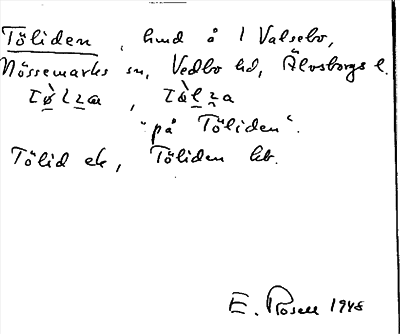 Töliden, hmd å 1 Valsebo,
Nössemarks sn, Vedbo hd, Älvsborgs l.
"på Töliden".
Tölid ek, Töliden kb.
E. Rosell 1948